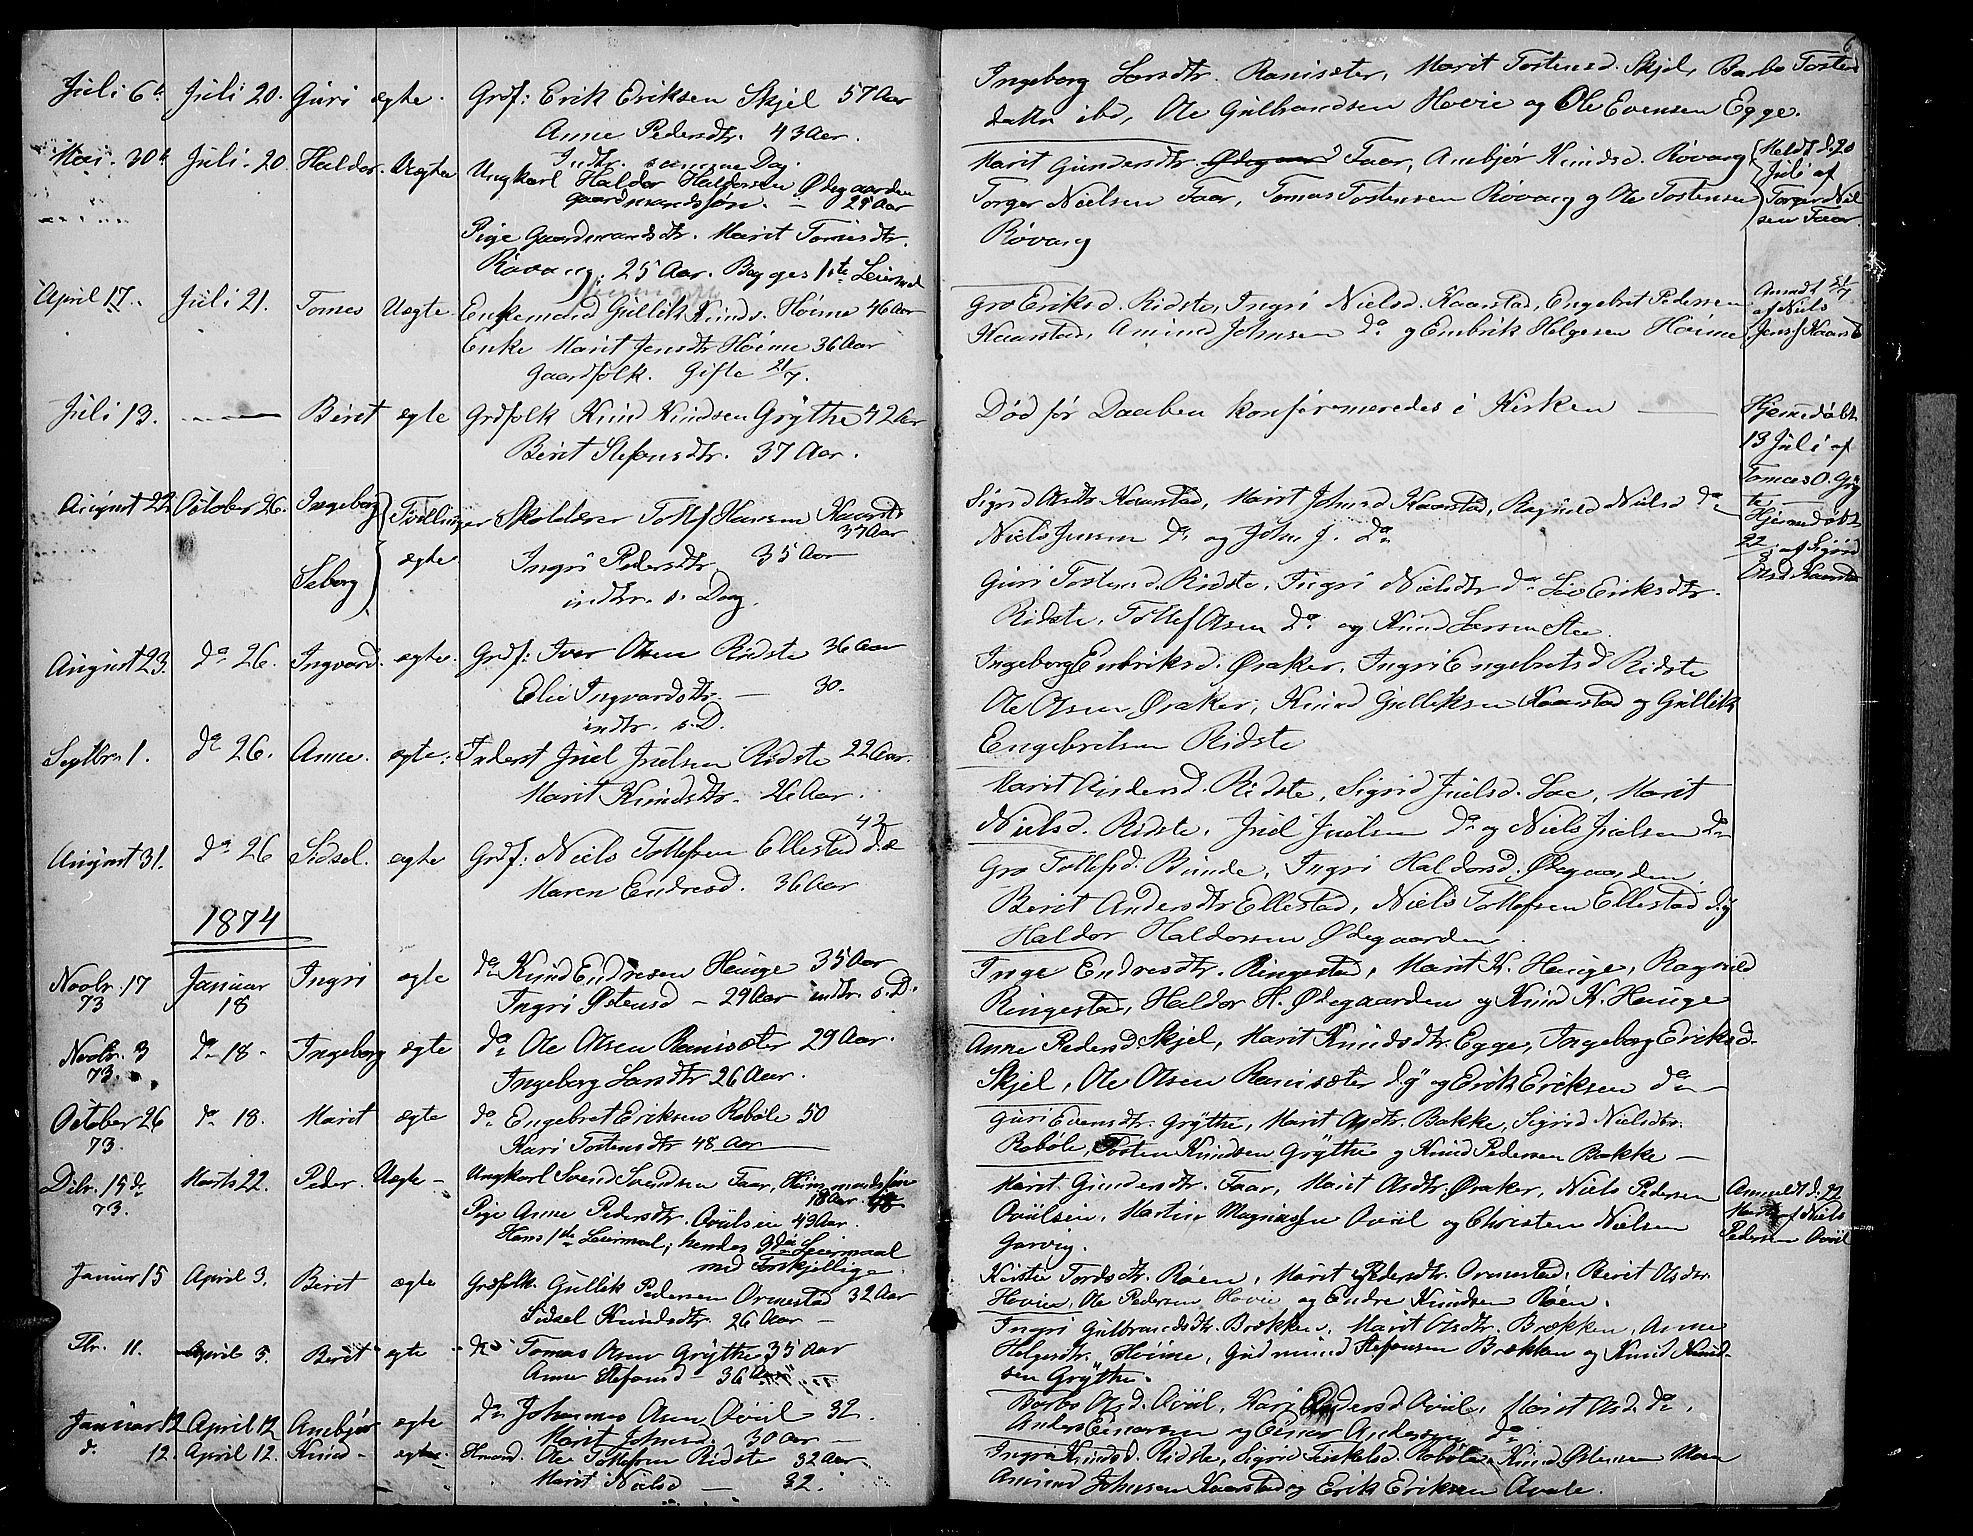 6
Juli 6te Juli 20. Guri ægte. Grdf: Erik Eriksen Skjel 57 Aar
Anne Pedersdtr. 43 Aar.
Indtr. samme Dag.
Mai. 30te Juli. 20 Haldor. Uægte Ungkarl Haldor Haldorsen Ødegaarden
gaardmandssøn. — 29 Aar
Pige Gaardmandsdtr. Marit Tomisdtr.
Røvang. 25 Aar. Begges 1ste Leiermaal
April 17. Juli 21. Tomes Uægte. Enkemand Gullik Knuds. Høime 46 Aar
Enke Marit Jensdtr Høime 36 Aar
Gaardfolk. Gifte 21/7.
Juli 13. — Berit ægte Grdfolk Knud Knudsen Grythe 42 Aar
Berit Stefensdtr. 37 Aar.
August 22 October 26. Ingeborg Tvillinger Skolelærer Tollef Hansen Kaarstd
37 Aar
Seborg ægte Ingri Pedersdtr. 35 Aar
indtr. s. Dag.
August 23. do 26. Ingvard. ægte. Grdf: Iver Olsen Ridste 36 Aar
Elie Ingvardsdtr. — 30.
indtr. s. D.
Septbr. 1. do 26. Anne. ægte. Inderst Juel Juelsen Ridste 22 Aar.
Marit Knudsdtr. 26 Aar.
42
August 31. do 26 Sidsel. ægte Grdf: Niels Tollefsen Ellestad
Maren Endresd. 36 Aar
1874
Novbr. 17 Januar Ingri ægte do Knud Endresen Hauge 35 Aar
73 18 Ingri Østensd — 29 Aar indtr. s. D.
Novbr. 3 do 18. Ingeborg ægte do Ole Olsen Ranisæter 29 Aar.
73. Ingeborg Larsdtr 26 Aar.
October 26 do 18. Marit ægte do Engebret Eriksen Robøle 50
73. Kari Tostensdtr 48 Aar
Dcbr. 15de Marts 22. Peder. Uægte — Ungkarl Svend Svendsen Faar, Husmandssøn
73. 18 Aar.
Pige Anne Pedersdtr. Qvilsen 43 Aar.
Hans 1ste Leiermaal; hendes 3die Leiermaal
med Forskjellige.
Januar 15 April 3. Berit ægte Grdfolk. Gullik Pedersen Ormestad 32 Aar
Sidsel Knudsdtr. 26 Aar —
Fbr. 11. April 5. Berit ægte do Tomas Olsen Grythe 35 Aar
Anne Stefansd — 36 Aar
Januar 12 April 12 Anebjør ægte do Johannes Olsen Qvil 32.
Marit Johnsd. 30 Aar —
do 12. April 12. Knud — ægte Hmand. Ole Tollefsen Ridste 32 Aar
Marit Nielsd — 32.
Ingeborg Larsdtr. Ranisæter, Marit Tostensd. Skjel, Barbo Tostens
datter ibd, Ole Gulbrandsen Hovie og Ole Evensen Egge.
Marit Gundersdtr. Ødegaard Faar, Anebjør Knudsd. Røvang Meldt d. 20
Torger Nielsen Faar, Tomas Tostensen Røvang og Ole Tostensen Juli af
Røvang Torger Niel
sen Faar.
Gro Eriksd. Ridste, Ingri Nielsd. Kaarstad, Engebret Pedersen Anmdt 21/7
Kaarstad, Amund Johnsen do og Embrik Helgesen Høime af Niels
Jens. Kaarst
Død før Daaben konfirmeredes i Kirken — Hjemmedøbt
13 Juli af
Tomas O. Gry
the
Sigrid Olsdtr. Kaarstad, Marit Johnsd Kaarstad, Ragnild Nielsd do
Niels Jensen do og John J. do Hjemmedøbt
22 af Sigrid
Olsd. Kaarstad
Guri Tostensd. Ridste, Ingri Nielsdtr do Live Eriksdtr.
Ridste, Tollef Olsen do og Knud Larsen Stee.
Ingeborg Embriksd. Øraker, Ingri Engebretsd Ridste
Ole Olsen Øraker, Knud Gulliksen Kaarstad og Gullik
Engebretsen Ridste
Marit Andersd. Ridste, Sigrid Juelsd. Loe, Marit
Nielsd. Ridste, Juel Juelsen do og Niels Juelsen do
Gro Tollefsd. Bunde, Ingri Haldorsd. Ødegaarden,
Berit Andersdtr Ellestad, Niels Tollefsen Ellestad d.y
Haldor Haldorsen Ødegaarden.
Inge Endresdtr. Ringestad, Marit K. Hauge, Ragnild
Ringestad, Haldor H. Ødegaarden og Knud K. Hauge
Anne Pedersd. Skjel, Marit Knudsdtr. Egge, Ingeborg Eriksd.
Skjel, Ole Olsen Ranisæter d.y og Erik Eriksen do
Guri Evensdtr. Grythe, Marit Olsdtr. Bakke, Sigrid Nielsdtr.
Robøle, Tosten Knudsen Grythe og Knud Pedersen Bakke —
Marit Gundersdtr. Faar, Marit Olsdtr. Øraker, Niels Pedersen Anmeldt d. 22
Qvilsen, Martin Magnussen Qvil og Christen Nielsen Marts af Niels
Garvig. Pedersen Qvil
Kirstie Tordsdtr. Røen, Marit Pedersdtr. Ormestad, Berit Olsdtr.
Hovien, Ole Pedersen Hovie og Endre Knudsen Røen.
Ingri Gulbrandsdtr. Brækken, Marit Olsdtr. Brækken, Anne
Helgesdtr. Høime, Gudmund Stefensen Brækken og Knud Knud-
sen Grythe.
Barbo Olsd. Qvil, Kari Pedersd Qvil, Marit Olsd. do,
Anders Einarsen og Einar Andersen do
Ingri Knudsd. Ridste, Sigrid Tirkelsd. Robøle, Knud Østensen Moen
Amund Johnsen Kaarstad og Erik Eriksen Qvale.